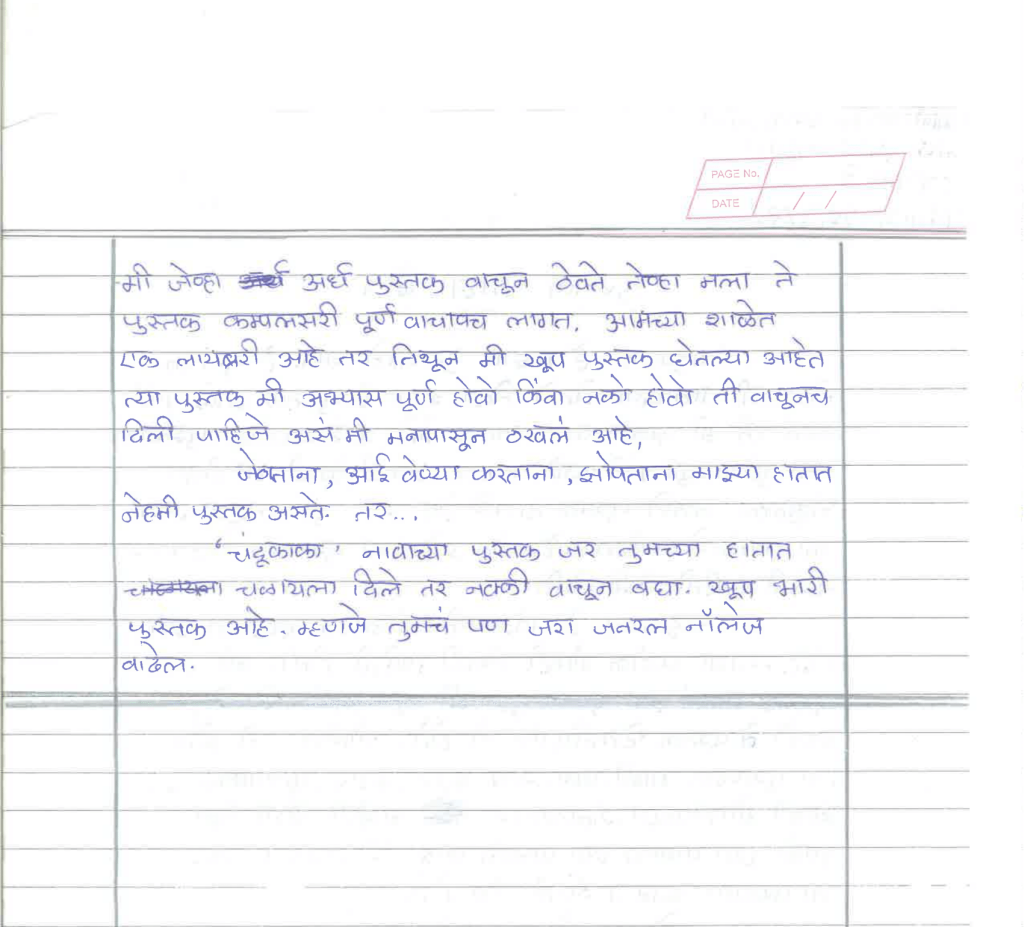 PAGE No.
DATE / /
मी जेव्हा अर्ध पुस्तक वाचून ठेवते तेव्हा मला ते
पुस्तक कम्पलसरी पूर्ण वाचावच लागत. आमच्या शाळेत
एक लायब्ररी आहे तर तिथून मी खूप पुस्तक घेतल्या आहेत
त्या पुस्तक मी अभ्यास पूर्ण होवो किंवा नको होवो ती वाचूनच
दिली पाहिजे असं मी मनापासून ठरवलं आहे,
जेवताना, आई वेण्या करताना, झोपताना माझ्या हातात
नेहमी पुस्तक असते. तर...
'चंदूकाका' नावाच्या पुस्तक जर तुमच्या हातात
चळायला दिले तर नक्की वाचून बघा. खूप भारी
पुस्तक आहे. म्हणजे तुमचं पण जरा जनरल नॉलेज
वाढेल.